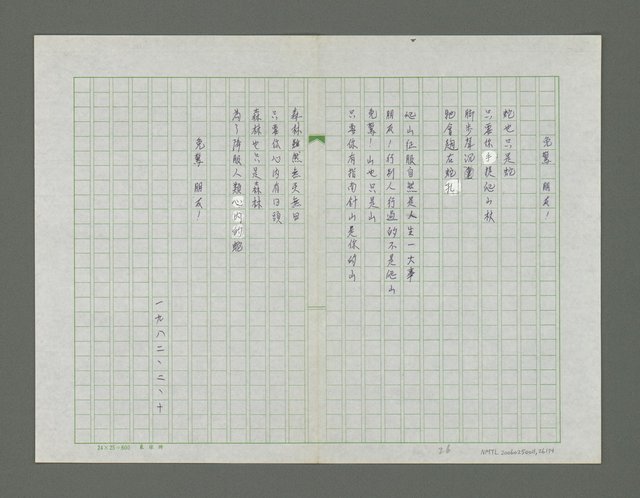 免驚 朋友!
蛇也只是蛇
只要你手提你山杖
腳步有沉重
牠會趖在蛇孔
爬山征服自然是人生一大事
朋友!行別人行過的不是爬山
免驚!山也只是山
只要你有指南針山是你的山
森林雖然無天無日
只要你心內有日頭
森林也只是森林
為了降服人類心內的蛇
免驚 朋友!
一九八二、二、十
24×25=600
26
NMTL 20060250011, 26/74